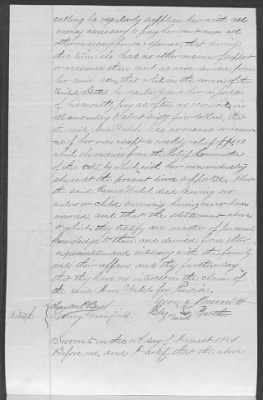 calling he regularly supplied her with all
money necessary to pay her rent and all
other necessary house expenses, that during
this time she had no other means of support
or income than that as was derived from
her said son, that while in the service of the
United States he regularly sent her a portion
of his monthly pay as often as received in
all amounting to about sixty five dollars, that
the said Ann Welch has no means or income
of her own except a weekly relief of $1.50
which she receives from the Relief Committee
of the city in which with her own industry
alone at the present time supports her. That
the said James Welch died leaving no
widow or child surviving having never been
married, and that the statements above
to which they testify are matters of personal
knowledge to them and derived from their
acquaintance and intimacy with the family
and their affairs and they further say
that they have no interest in the claim of
the said Ann Welch for Pension.
George
his mark
Sworn to on this day of August 1865
Before me, and I certify that the above